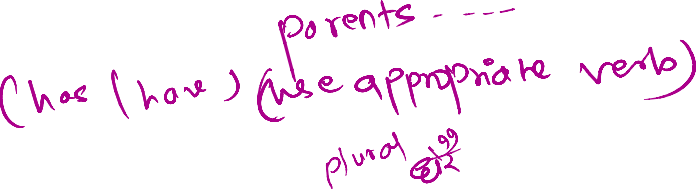 parents ----
(has / have) (use appropriate verb)
plural